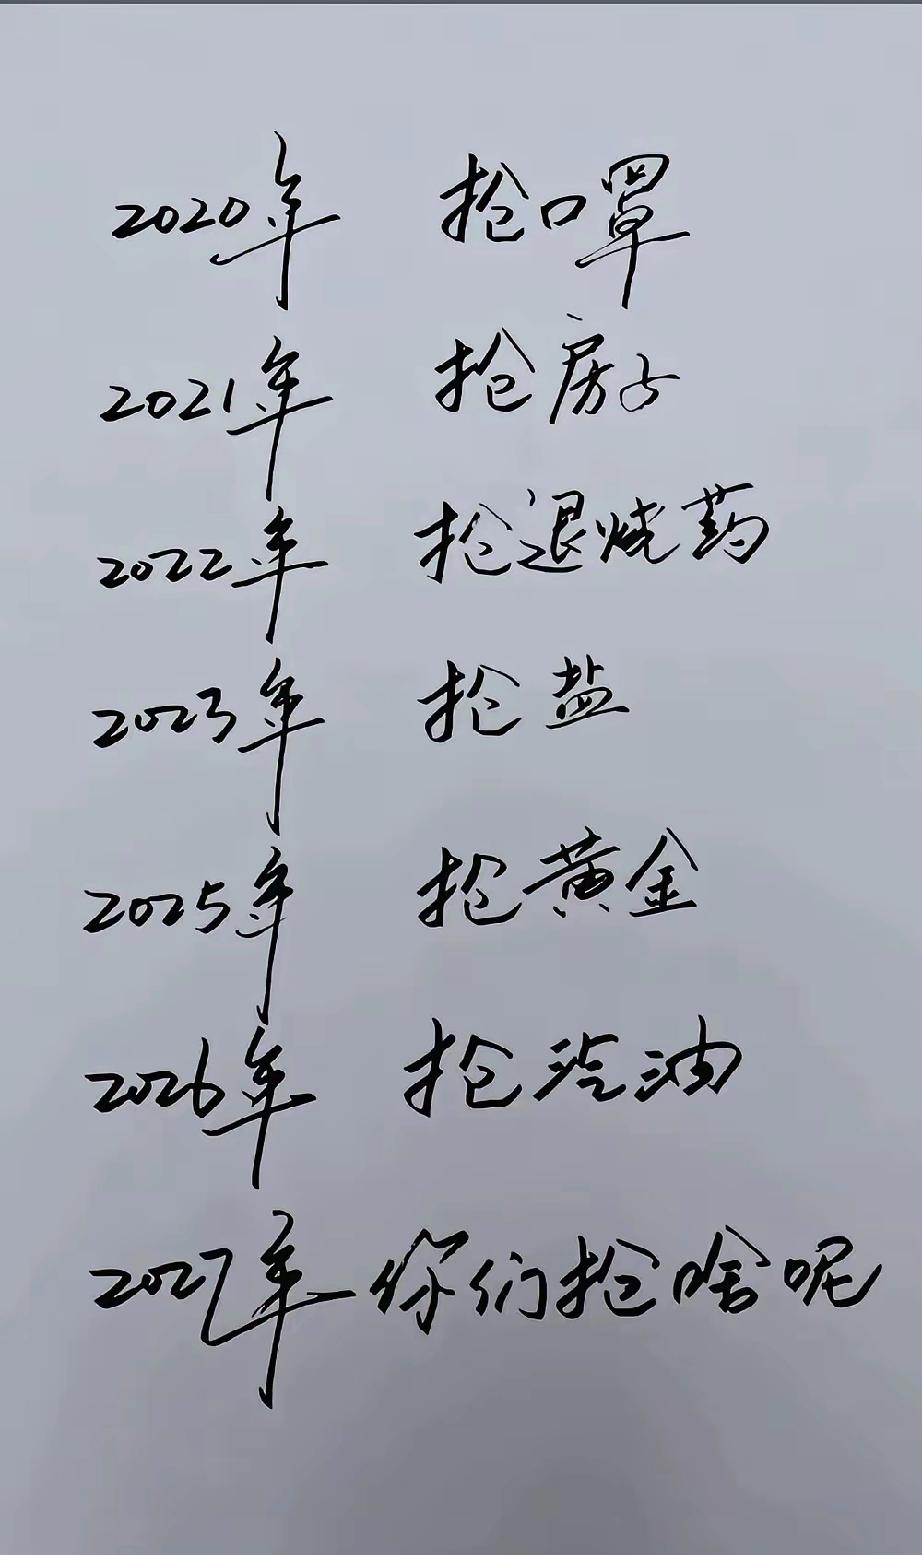 2020年 抢口罩
2021年 抢房子
2022年 抢退烧药
2023年 抢盐
2025年 抢黄金
2026年 抢汽油
2027年 你们抢啥呢